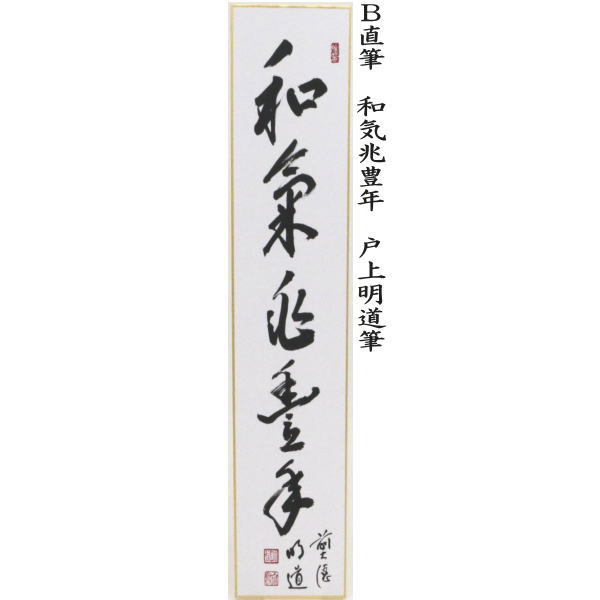 B直筆　和気兆豊年　戸上明道筆
和氣兆豊年
前大德
明道